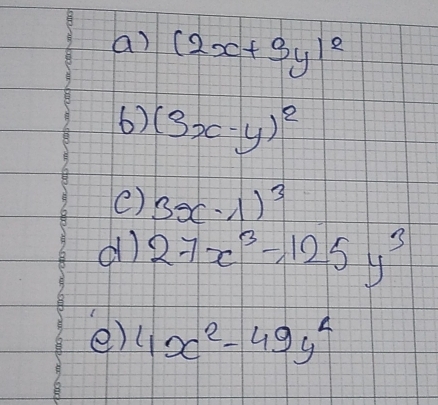 a) (2x+3y)²
b) (3x-y)²
c) 3x-1)³
d) 27x³-125y³
e) 4x²-49y²